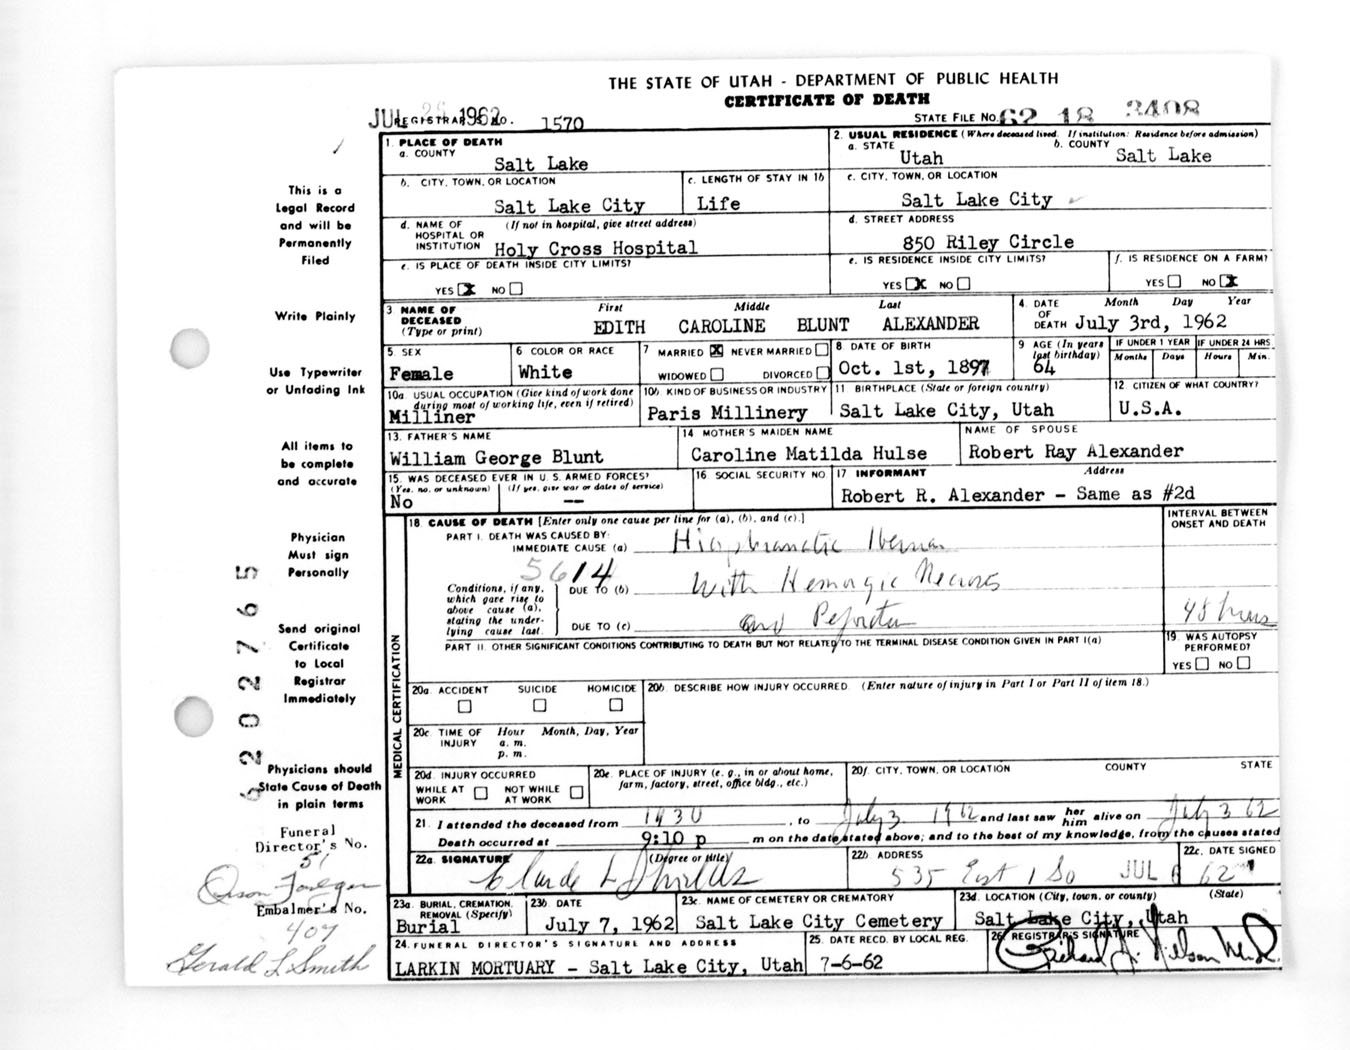 THE STATE OF UTAH - DEPARTMENT OF PUBLIC HEALTH
CERTIFICATE OF DEATH
JUL 1962
REGISTRAR'S NO. 1570
STATE FILE NO. 62 18 3408
1. PLACE OF DEATH
a. COUNTY
Salt Lake
2. USUAL RESIDENCE (Where deceased lived. If institution: Residence before admission)
a. STATE
Utah
b. COUNTY
Salt Lake
b. CITY, TOWN, OR LOCATION
Salt Lake City
c. LENGTH OF STAY IN 1b
Life
c. CITY, TOWN, OR LOCATION
Salt Lake City
d. NAME OF HOSPITAL OR INSTITUTION
(If not in hospital, give street address)
Holy Cross Hospital
d. STREET ADDRESS
850 Riley Circle
e. IS PLACE OF DEATH INSIDE CITY LIMITS?
YES X NO
e. IS RESIDENCE INSIDE CITY LIMITS?
YES X NO
f. IS RESIDENCE ON A FARM?
YES NO X
3 NAME OF DECEASED
(Type or print)
First Middle Last
EDITH CAROLINE BLUNT ALEXANDER
4. DATE OF DEATH
Month Day Year
July 3rd, 1962
5. SEX
Female
6 COLOR OR RACE
White
7 MARRIED X NEVER MARRIED
WIDOWED DIVORCED
8 DATE OF BIRTH
Oct. 1st, 1897
9 AGE (In years last birthday)
64
IF UNDER 1 YEAR
Months Days
IF UNDER 24 HRS
Hours Min.
10a. USUAL OCCUPATION (Give kind of work done during most of working life, even if retired)
Milliner
10b. KIND OF BUSINESS OR INDUSTRY
Paris Millinery
11 BIRTHPLACE (State or foreign country)
Salt Lake City, Utah
12 CITIZEN OF WHAT COUNTRY?
U.S.A.
13. FATHER'S NAME
William George Blunt
14 MOTHER'S MAIDEN NAME
Caroline Matilda Hulse
NAME OF SPOUSE
Robert Ray Alexander
15. WAS DECEASED EVER IN U.S. ARMED FORCES?
(Yes, no, or unknown) (If yes, give war or dates of service)
No --
16. SOCIAL SECURITY NO
17. INFORMANT Address
Robert R. Alexander - Same as #2d
MEDICAL CERTIFICATION
18 CAUSE OF DEATH [Enter only one cause per line for (a), (b), and (c).]
INTERVAL BETWEEN ONSET AND DEATH
PART I. DEATH WAS CAUSED BY:
IMMEDIATE CAUSE (a)
5614
Conditions, if any, which gave rise to above cause (a), stating the underlying cause last.
DUE TO (b) With
DUE TO (c) and
48 hours
PART II. OTHER SIGNIFICANT CONDITIONS CONTRIBUTING TO DEATH BUT NOT RELATED TO THE TERMINAL DISEASE CONDITION GIVEN IN PART I(a)
19. WAS AUTOPSY PERFORMED?
YES NO
20a. ACCIDENT SUICIDE HOMICIDE
20b. DESCRIBE HOW INJURY OCCURRED. (Enter nature of injury in Part I or Part II of item 18.)
20c. TIME OF INJURY
Hour Month, Day, Year
a. m.
p. m.
20d. INJURY OCCURRED
WHILE AT WORK NOT WHILE AT WORK
20e. PLACE OF INJURY (e. g., in or about home, farm, factory, street, office bldg., etc.)
20f. CITY, TOWN, OR LOCATION COUNTY STATE
21. I attended the deceased from 1930, to July 3 1962 and last saw her him alive on July 3 62
Death occurred at 9:10 p m on the date stated above; and to the best of my knowledge, from the causes stated
22a. SIGNATURE (Degree or title)
Claude L Shields
22b. ADDRESS
535 East 1 So
22c. DATE SIGNED
JUL 6 62
23a. BURIAL, CREMATION, REMOVAL (Specify)
Burial
23b. DATE
July 7, 1962
23c. NAME OF CEMETERY OR CREMATORY
Salt Lake City Cemetery
23d. LOCATION (City, town, or county) (State)
Salt Lake City, Utah
24. FUNERAL DIRECTOR'S SIGNATURE AND ADDRESS
LARKIN MORTUARY - Salt Lake City, Utah
25. DATE RECD. BY LOCAL REG.
7-6-62
26. REGISTRAR'S SIGNATURE
This is a
Legal Record
and will be
Permanently
Filed
Write Plainly
Use Typewriter
or Unfading Ink
All items to
be complete
and accurate
Physician
Must sign
Personally
Send original
Certificate
to Local
Registrar
Immediately
Physicians should
State Cause of Death
in plain terms
Funeral
Director's No.
51
Embalmer's No.
407
Gerald L Smith
6202765